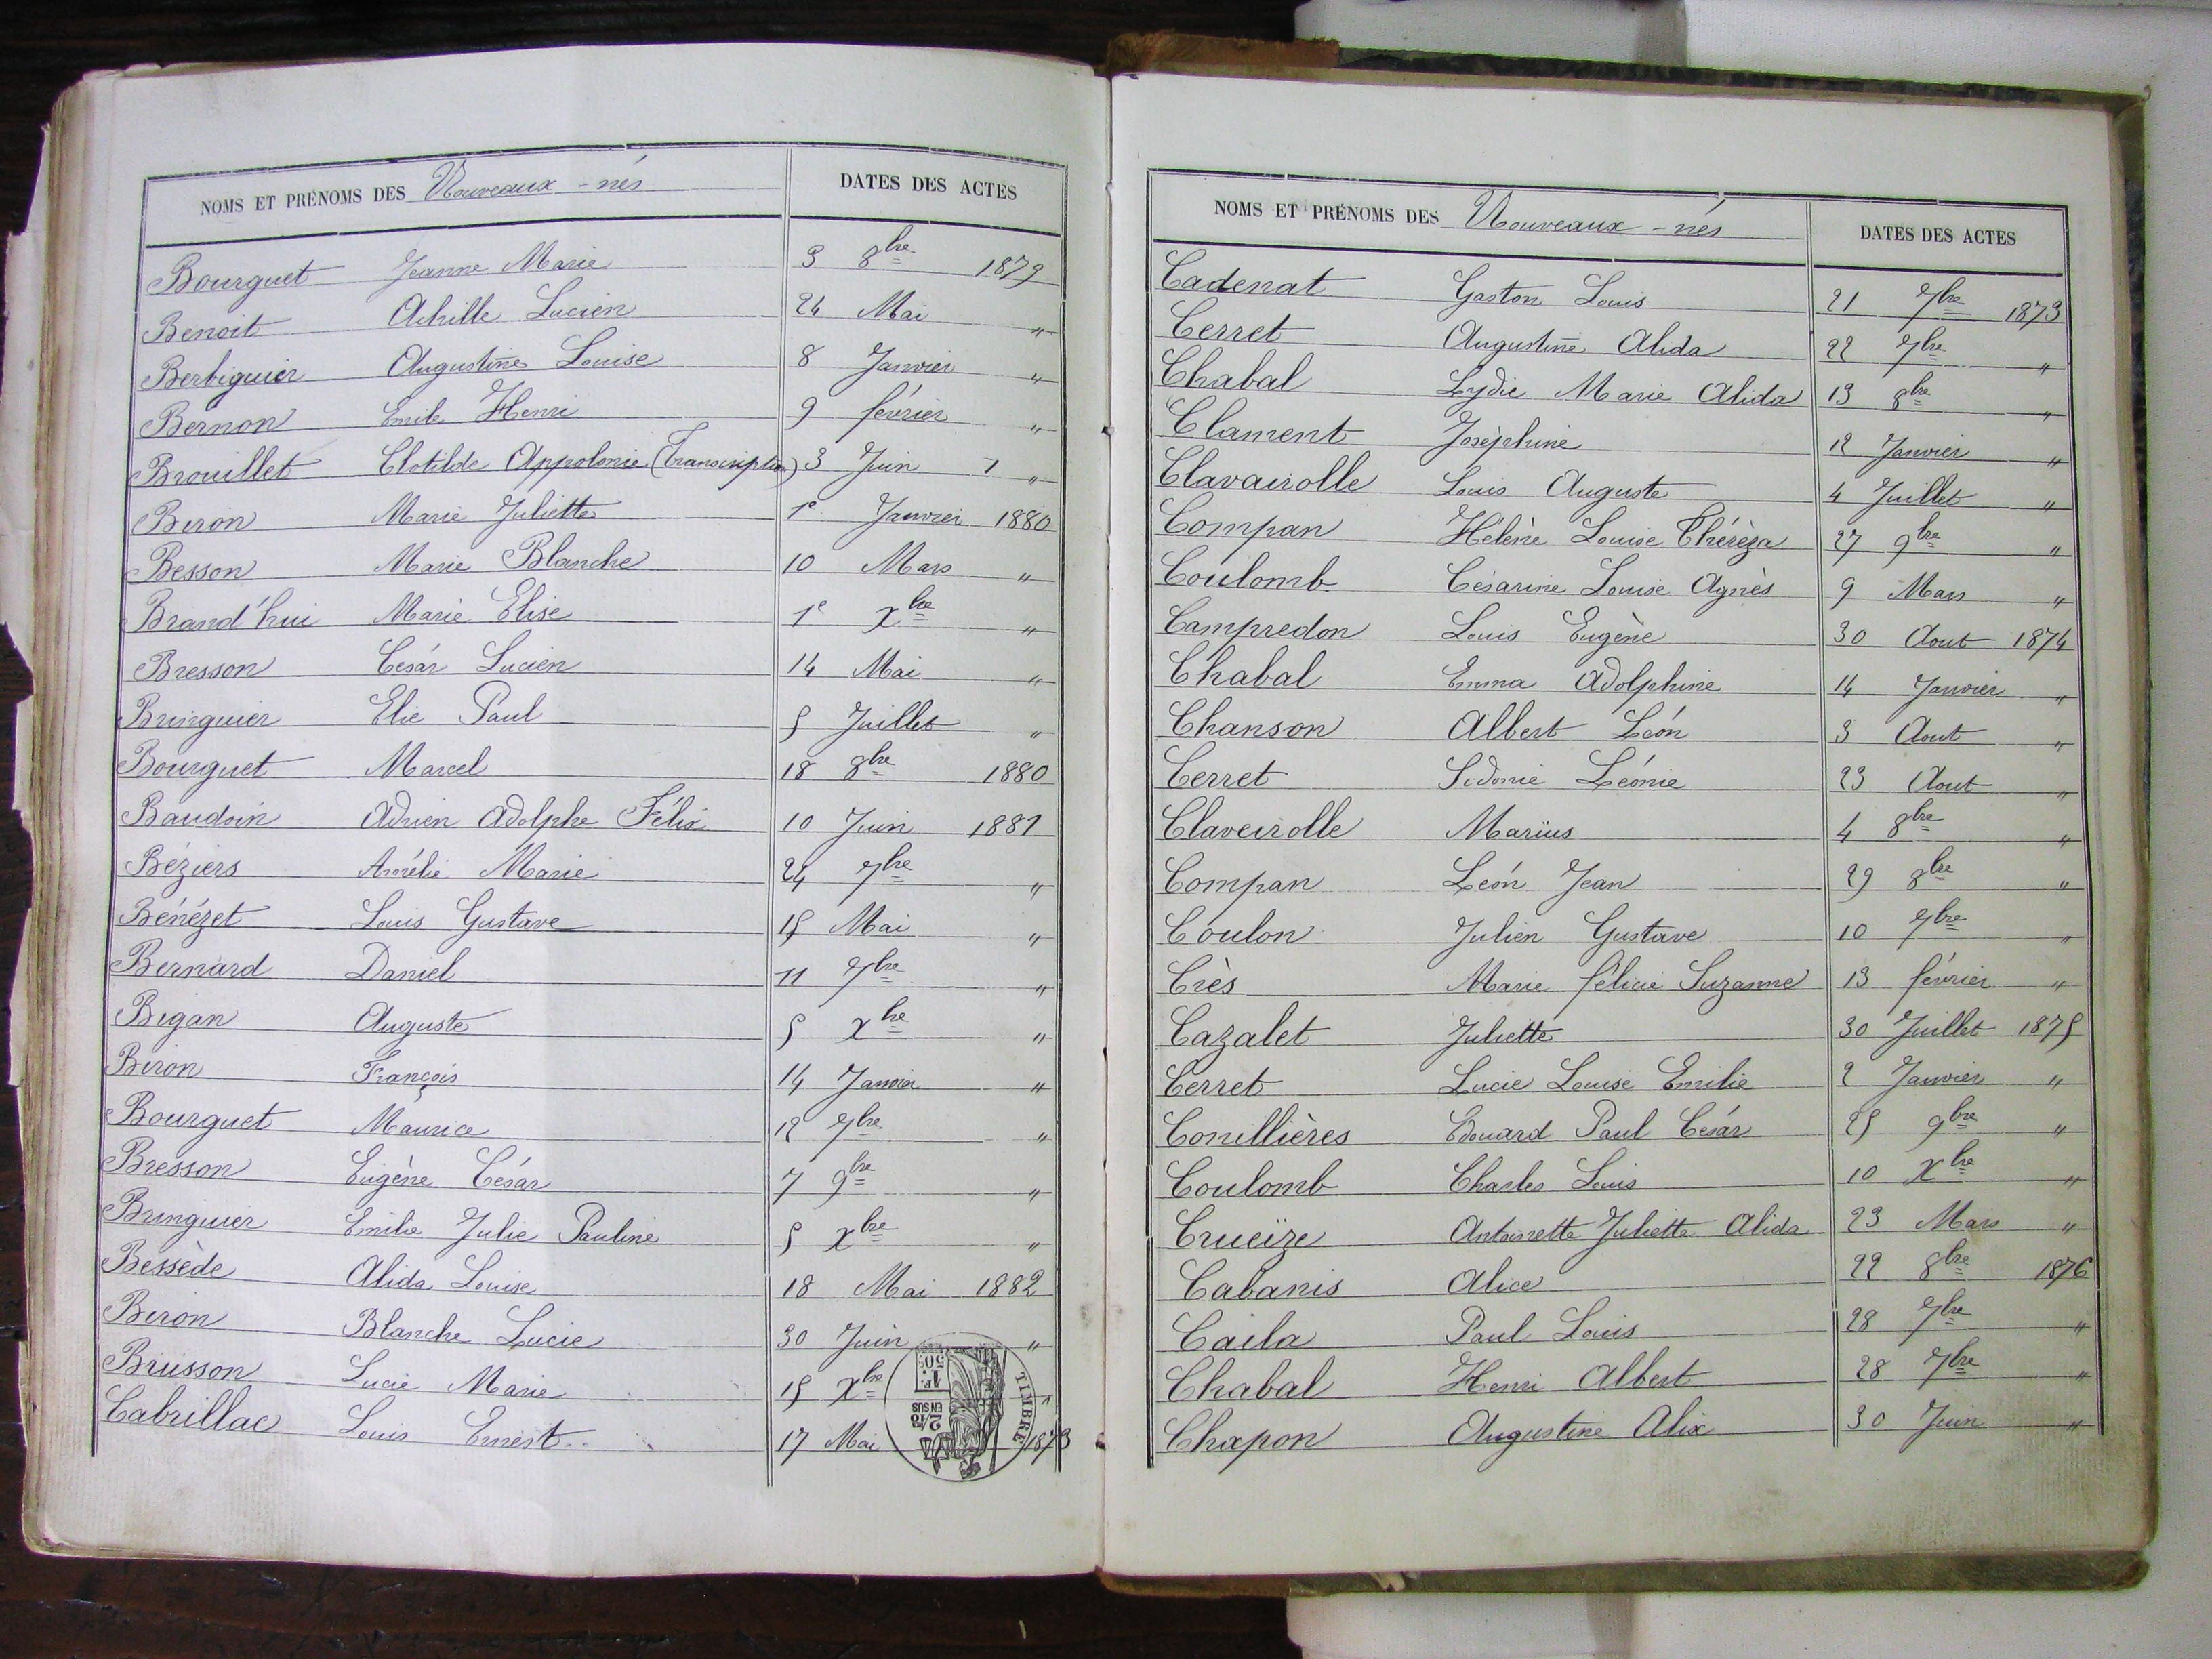 NOMS ET PRÉNOMS DES Nouveaux-nés DATES DES ACTES
Bourguet Jeanne Marie 3 8bre 1879
Benoit Achille Lucien 24 Mai "
Berbiguier Augustine Louise 8 Janvier "
Bernon Emile Henri 9 février "
Brouillet Clotilde Appolonie (Transcription) 3 Juin "
Biron Marie Juliette 1e Janvier 1880
Besson Marie Blanche 10 Mars "
Brand'hui Marie Elise 1e Xbre "
Bresson César Lucien 14 Mai "
Bringuier Elie Paul 5 Juillet "
Bourguet Marcel 18 8bre 1880
Baudoin Adrien Adolphe Félix 10 Juin 1881
Béziers Amélie Marie 24 7bre "
Bénézet Louis Gustave 15 Mai "
Bernard Daniel 11 7bre "
Bigan Auguste 5 Xbre "
Biron François 14 Janvier "
Bourguet Maurice 12 7bre "
Bresson Eugène César 7 9bre "
Bringuier Emilie Julie Pauline 5 Xbre "
Bessède Alida Louise 18 Mai 1882
Biron Blanche Lucie 30 Juin "
Brusson Lucie Marie 15 Xbre "
Cabrillac Louis Ernest 17 Mai 1873
TIMBRE
1F. 50c.
2/10 EN SUS
NOMS ET PRÉNOMS DES Nouveaux-nés DATES DES ACTES
Cadenat Gaston Louis 21 7bre 1873
Cerret Augustine Alida 22 7bre "
Chabal Lydie Marie Alida 13 8bre "
Clament Joséphine 12 Janvier "
Clavairolle Louis Auguste 4 Juillet "
Compan Hélène Louise Théréza 27 9bre "
Coulomb Césarine Louise Agnès 9 Mars "
Campredon Louis Eugène 30 Aout 1874
Chabal Emma Adolphine 14 Janvier "
Chanson Albert Léon 3 Aout "
Cerret Sidonie Léonie 23 Aout "
Claveirolle Marius 4 8bre "
Compan Léon Jean 29 8bre "
Coulon Julien Gustave 10 7bre "
Crès Marie félicie Suzanne 13 février "
Cazalet Juliette 30 Juillet 1875
Cerret Lucie Louise Emilie 2 Janvier "
Conillières Edouard Paul César 25 9bre "
Coulomb Charles Louis 10 Xbre "
Crueïze Antoinette Juliette Alida 23 Mars "
Cabanis Alice 22 8bre 1876
Caila Paul Louis 28 7bre "
Chabal Henri Albert 28 7bre "
Chapon Augustine Alix 30 Juin "